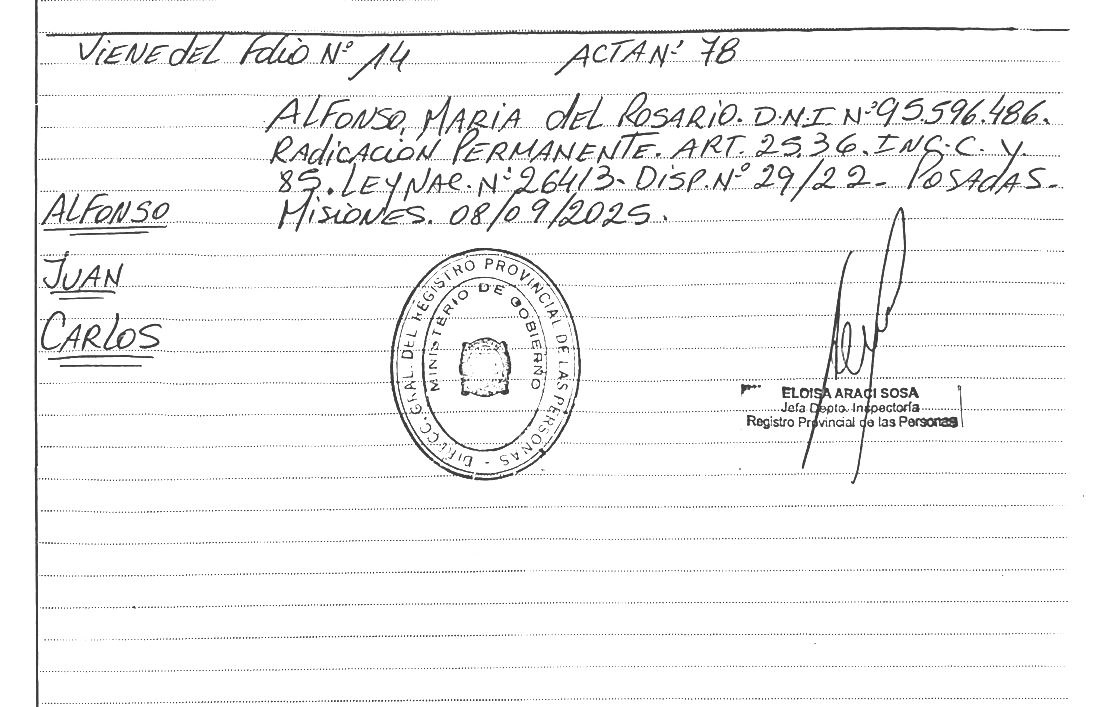 VIENE DEL FOLIO Nº 14 ACTA Nº 78
ALFONSO, MARIA DEL ROSARIO. D.N.I Nº 95.596.486.
RADICACIÓN PERMANENTE. ART. 25.36. INC.C. Y.
85. LEY NAC. Nº 26413- DISP. Nº 29/22- POSADAS-
MISIONES. 08/09/2025.
ALFONSO
JUAN
CARLOS
DIRECC. GRAL. DEL REGISTRO PROVINCIAL DE LAS PERSONAS -
MINISTERIO DE GOBIERNO
ELOISA ARACI SOSA
Jefa Depto. Inspectoría
Registro Provincial de las Personas